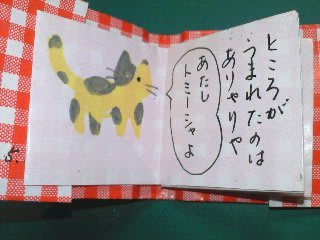 ところが
うまれたのは
ありゃりゃ
あたし
トミーシャよ
5.